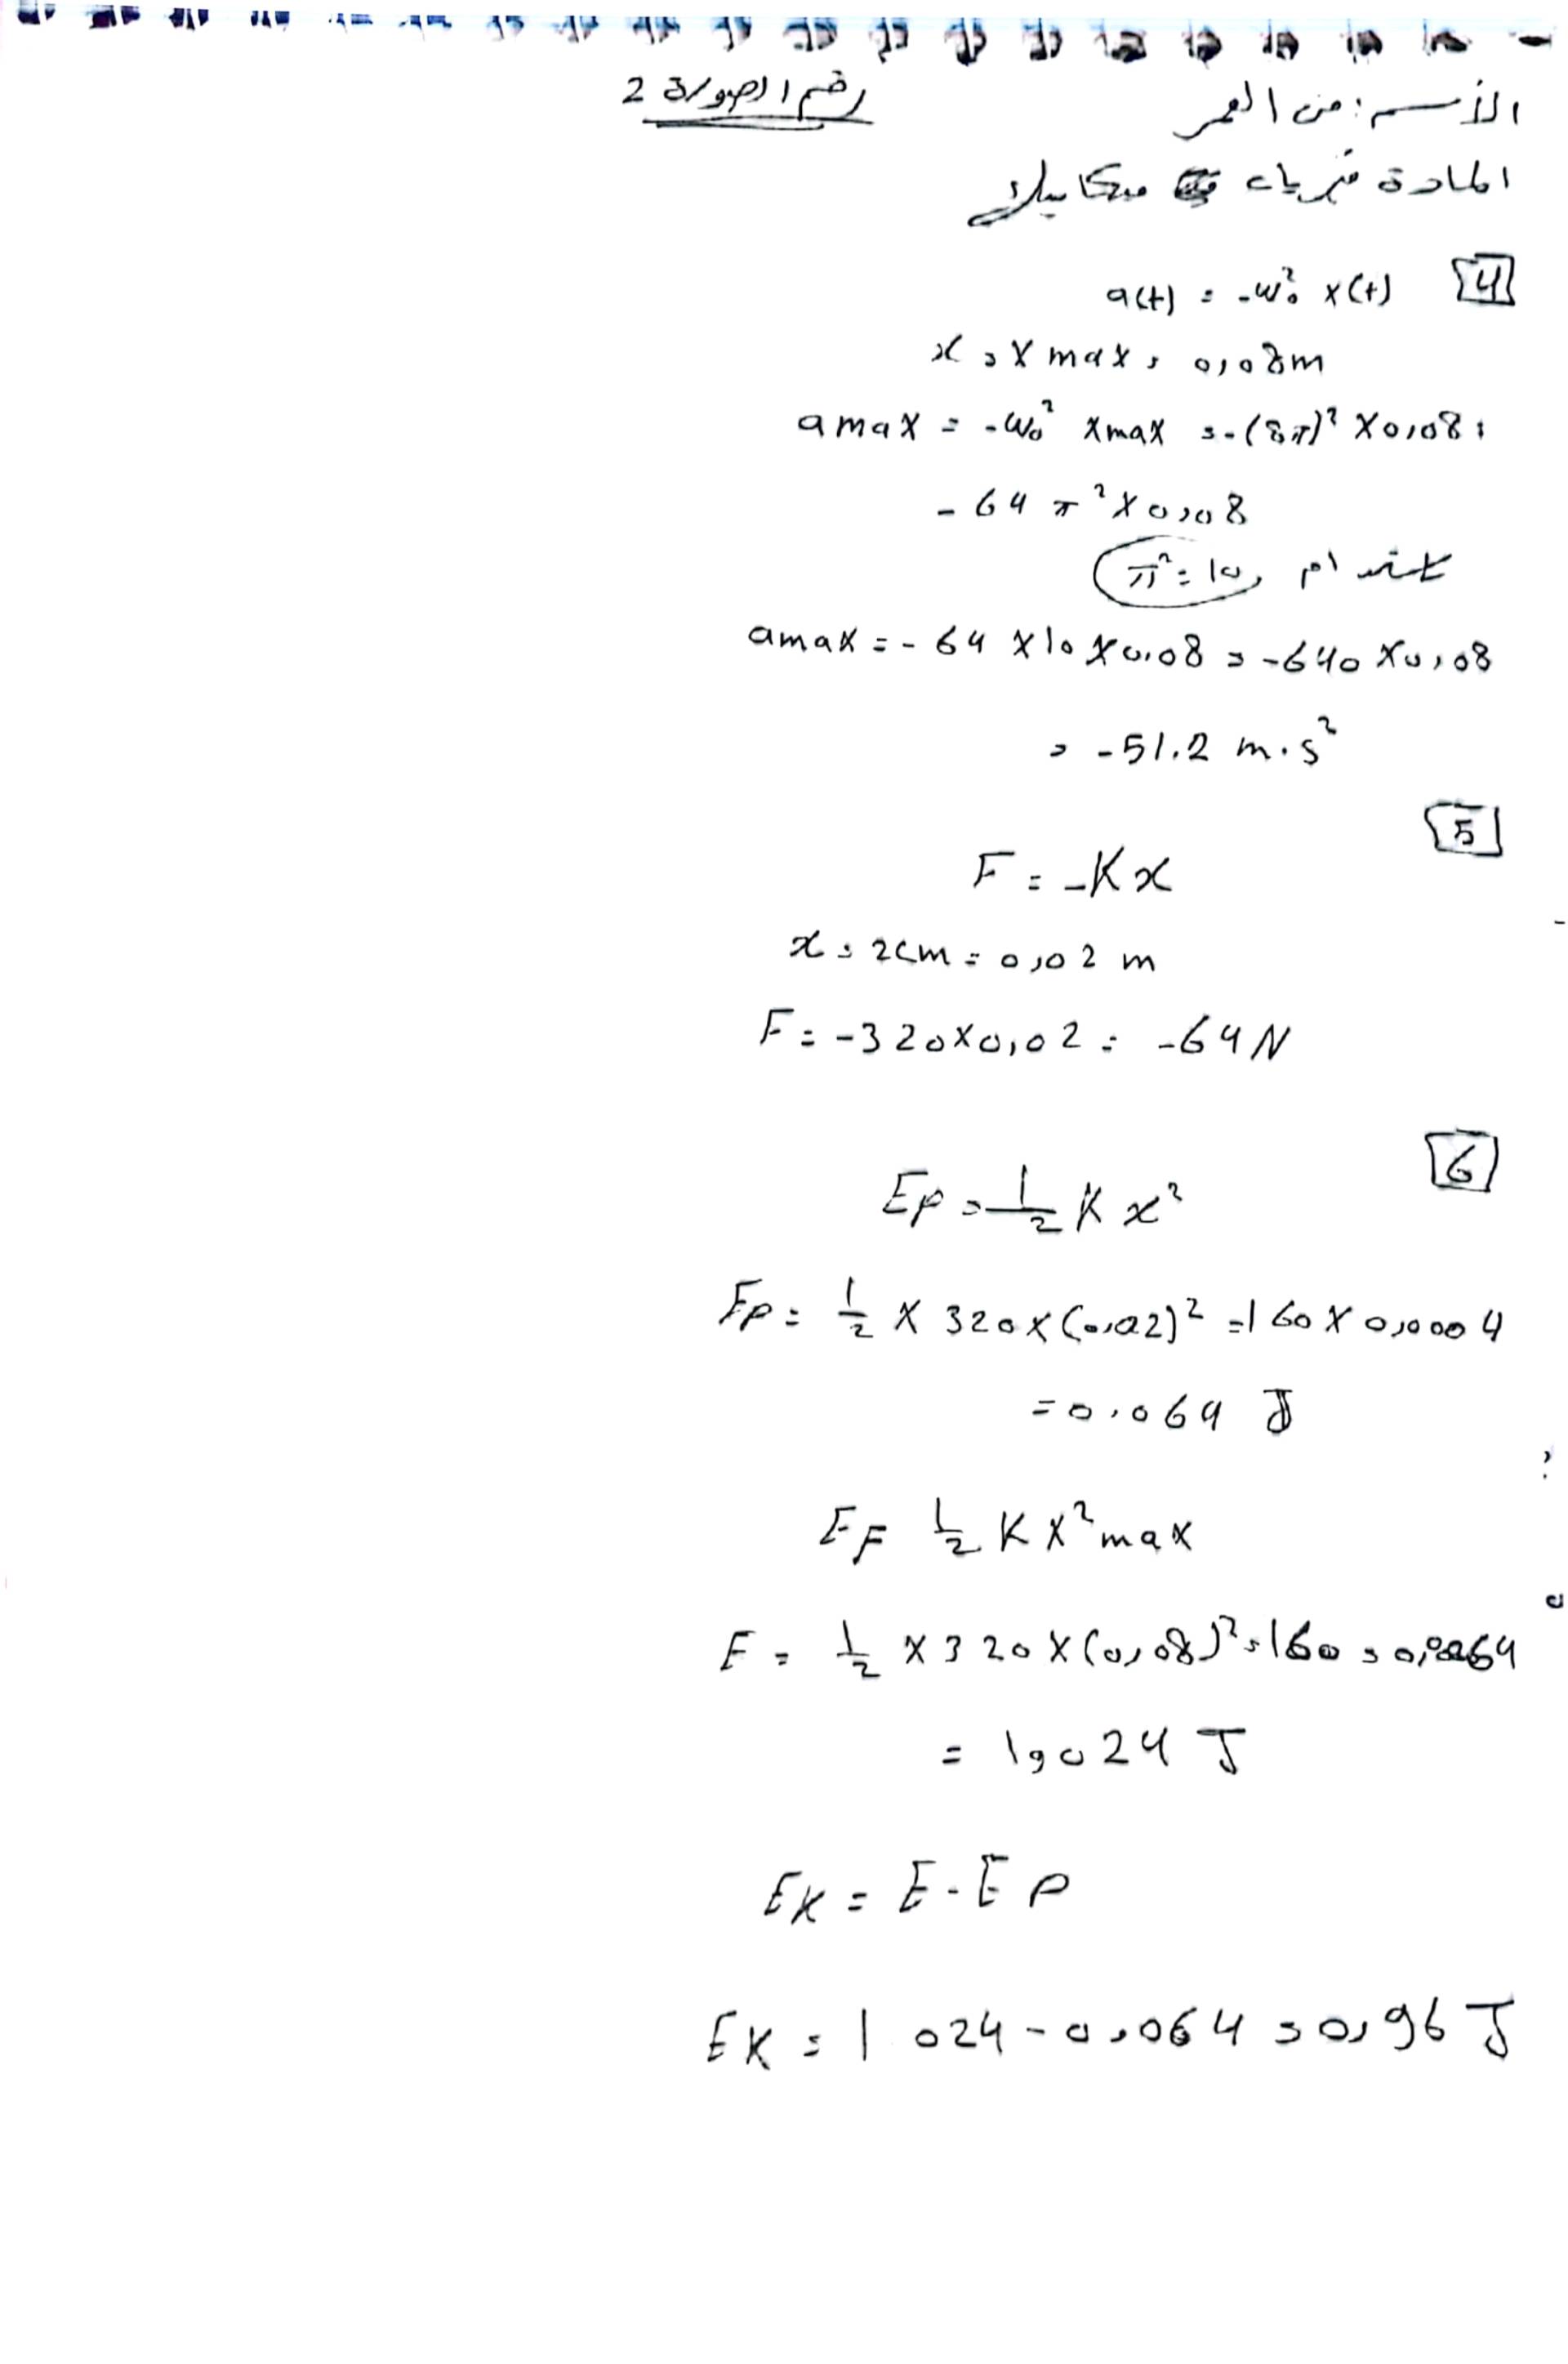 رقم الصورة 2
الأسم: من العمر
المادة فيزياء ميكانيك
4
a(t) = -w₀² x(t)
x = X max = 0,08m
a max = -w₀² xmax = -(8π)² X0,08 =
-64 π² X 0,08
π² = 10,
amax = -64 X10 X0,08 = -640 X0,08
= -51.2 m.s²
5
F = -Kx
x = 2cm = 0,02 m
F = -320X0,02 = -64N
6
Ep = 1/2 K x²
Ep = 1/2 X 320X(0,02)² = 160 X 0,0004
= 0.064 J
EF 1/2 K X² max
E = 1/2 X 320 X (0,08)² = 160 = 0,0064
= 1,024 J
EK = E - Ep
EK = 1 024 - 0,064 = 0,96 J